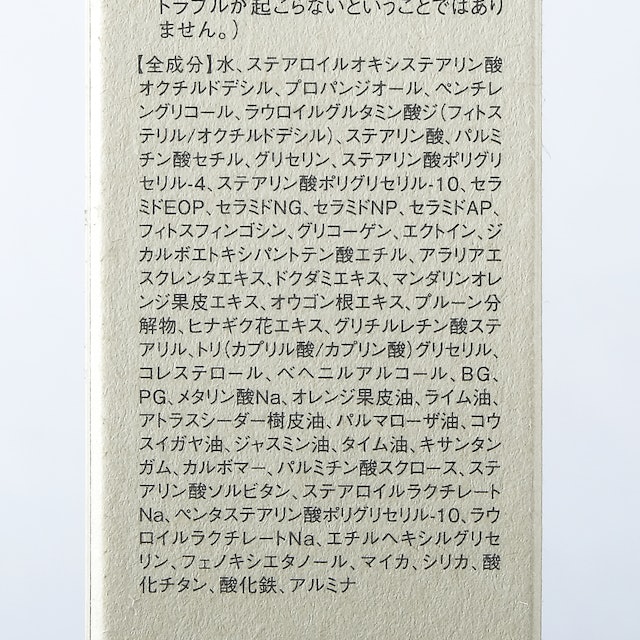 トラブルが起こらないということではあり
ません。）
【全成分】水、ステアロイルオキシステアリン酸
オクチルドデシル、プロパンジオール、ペンチレ
ングリコール、ラウロイルグルタミン酸ジ（フィトス
テリル/オクチルドデシル）、ステアリン酸、パルミ
チン酸セチル、グリセリン、ステアリン酸ポリグリ
セリル-4、ステアリン酸ポリグリセリル-10、セラ
ミドEOP、セラミドNG、セラミドNP、セラミドAP、
フィトスフィンゴシン、グリコーゲン、エクトイン、ジ
カルボエトキシパントテン酸エチル、アラリアエ
スクレンタエキス、ドクダミエキス、マンダリンオレ
ンジ果皮エキス、オウゴン根エキス、プルーン分
解物、ヒナギク花エキス、グリチルレチン酸ステ
アリル、トリ（カプリル酸/カプリン酸）グリセリル、
コレステロール、ベヘニルアルコール、BG、
PG、メタリン酸Na、オレンジ果皮油、ライム油、
アトラスシーダー樹皮油、パルマローザ油、コウ
スイガヤ油、ジャスミン油、タイム油、キサンタン
ガム、カルボマー、パルミチン酸スクロース、ステ
アリン酸ソルビタン、ステアロイルラクチレート
Na、ペンタステアリン酸ポリグリセリル-10、ラウ
ロイルラクチレートNa、エチルヘキシルグリセ
リン、フェノキシエタノール、マイカ、シリカ、酸
化チタン、酸化鉄、アルミナ